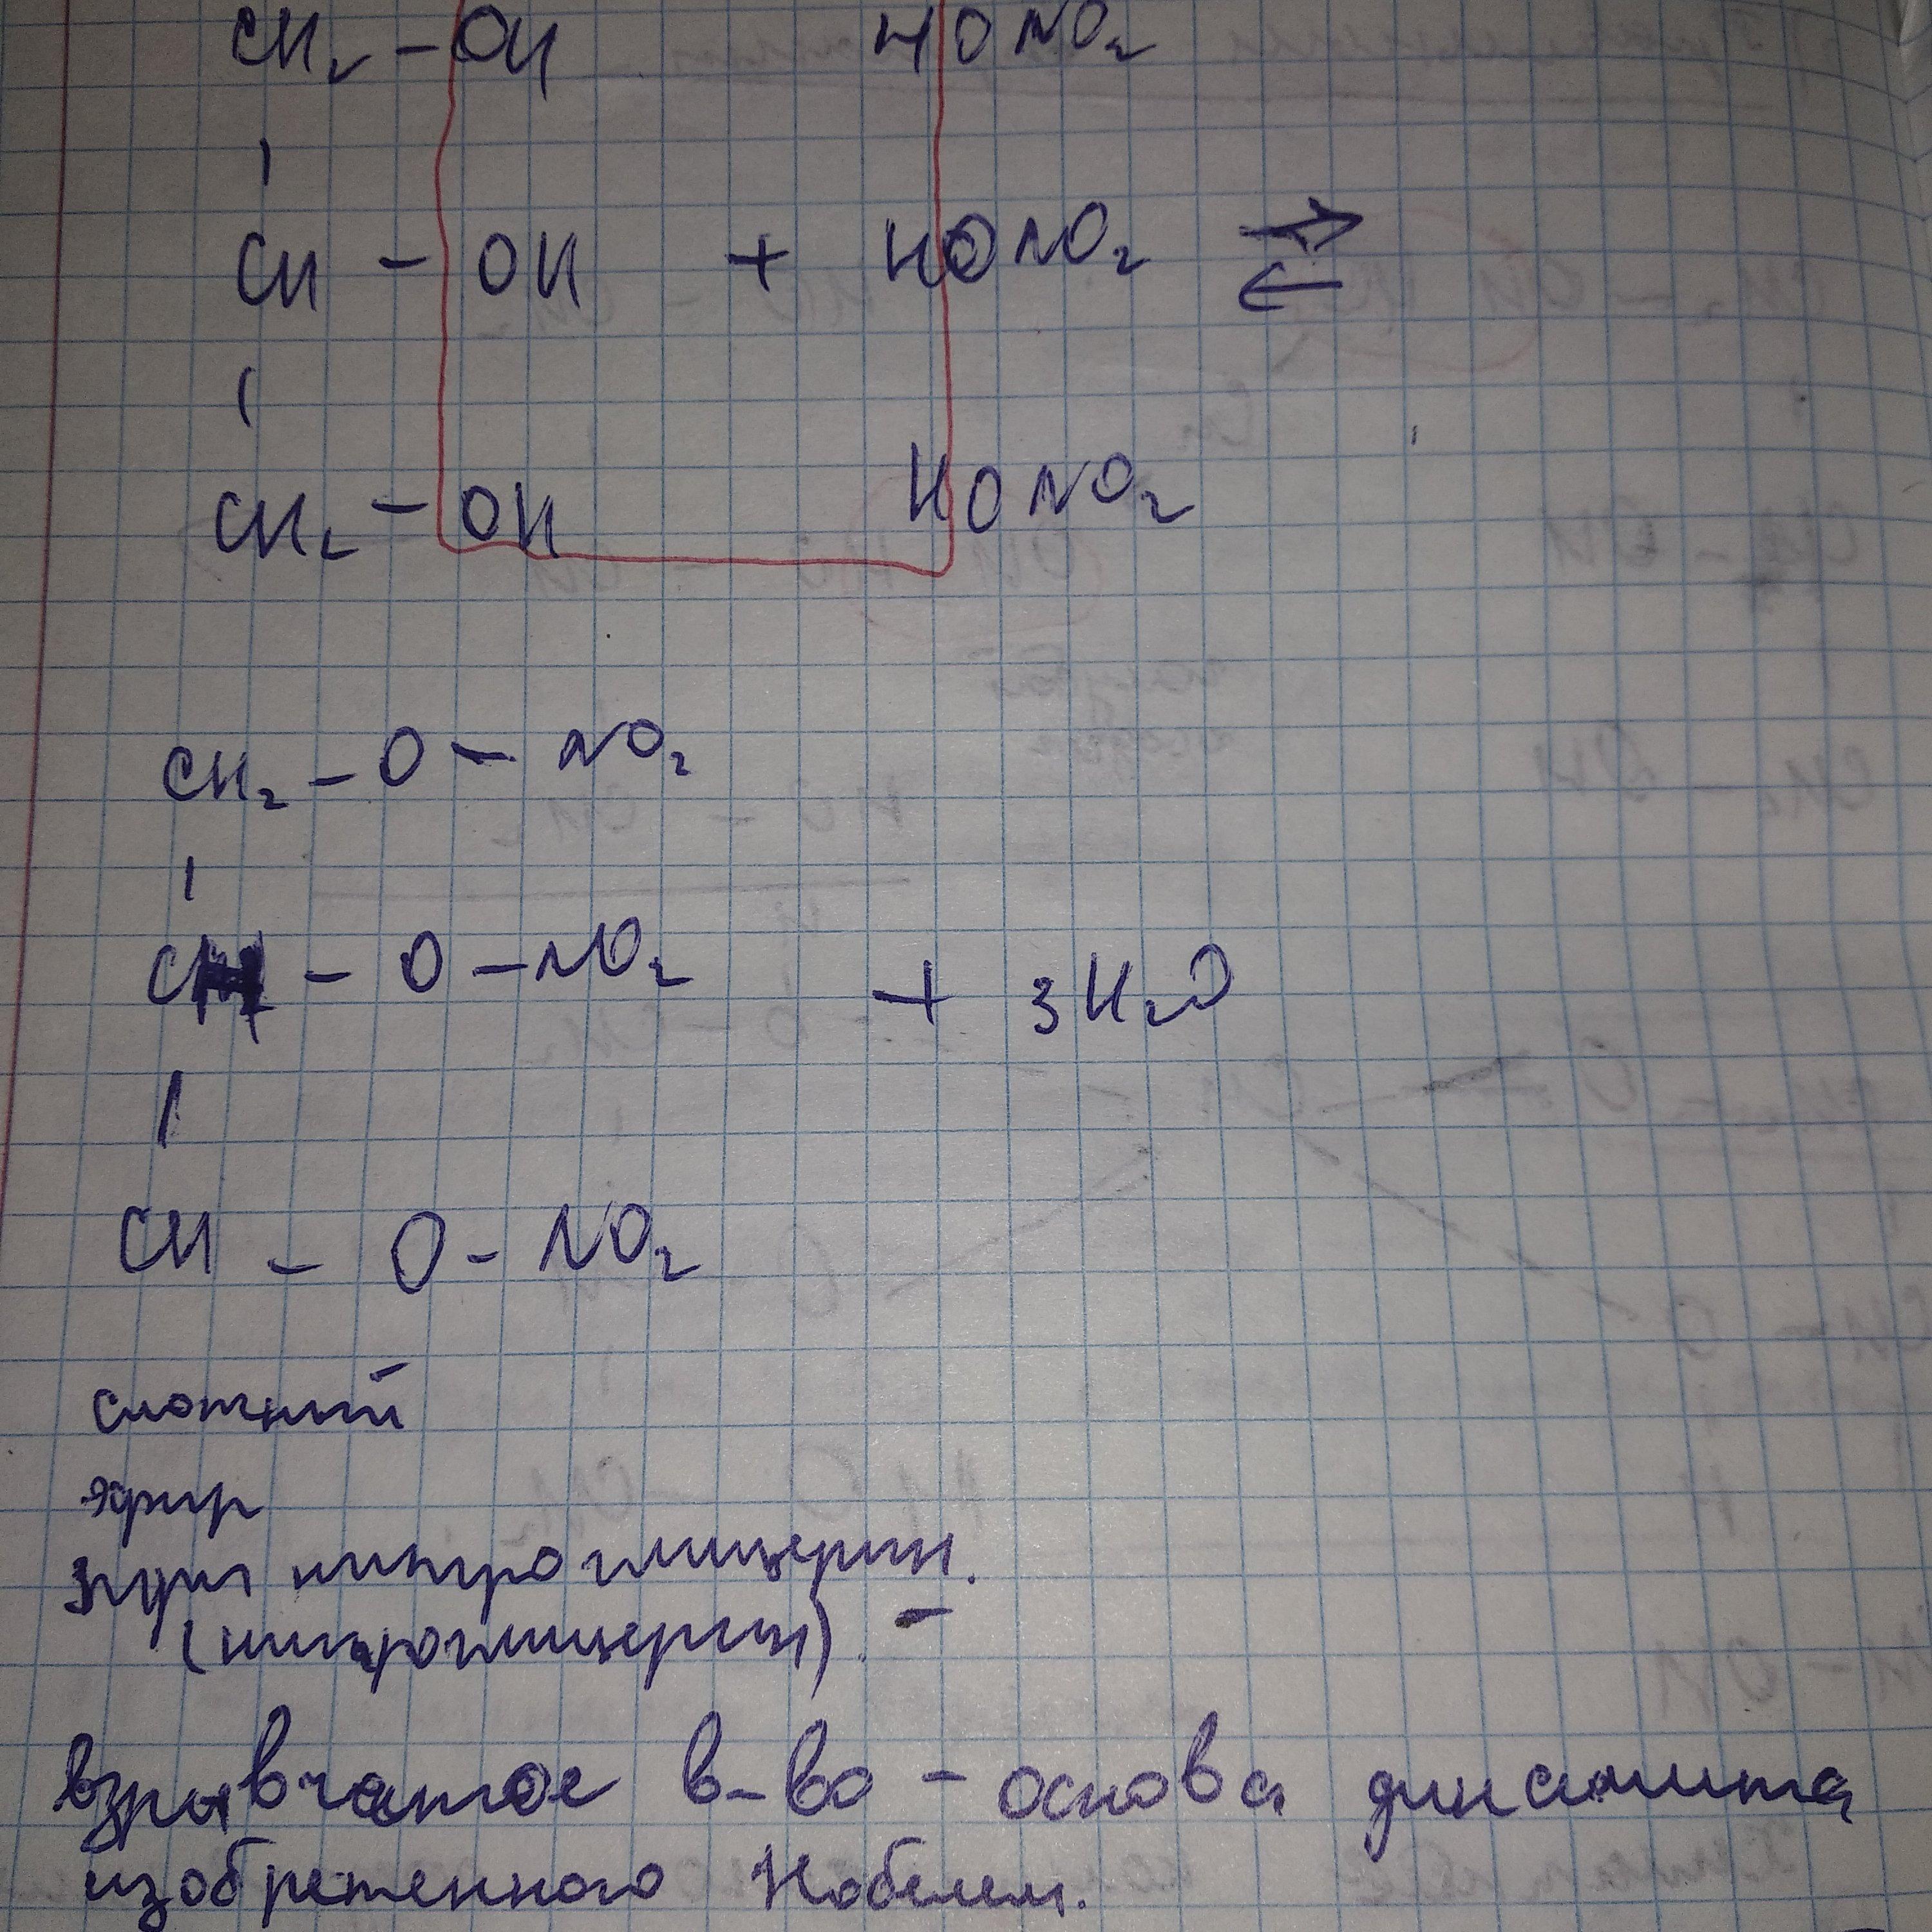 CH₂ – OH HONO₂
CH – OH + HONO₂ ⇄
CH₂ – OH HONO₂
CH₂ – O – NO₂
CH – O – NO₂ + 3H₂O
CH – O – NO₂
сложный
эфир
нитроглицерин.
(нитроглицерин). –
взрывчатое в-во – основа динамита
изобретенного Нобелем.